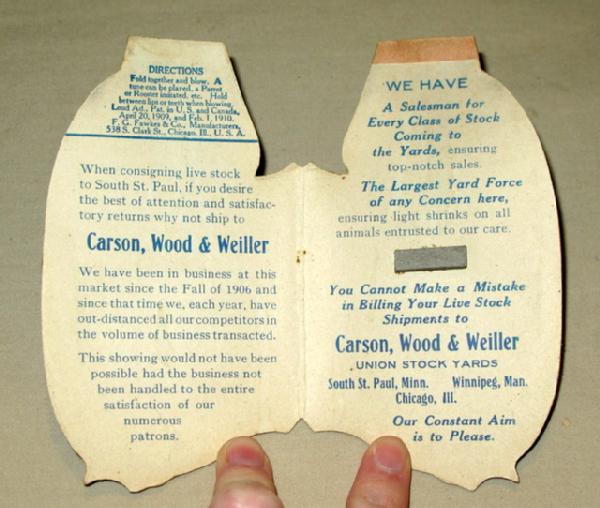 DIRECTIONS
Fold together and blow. A
tune can be played, a Parrot
or Rooster imitated, etc. Hold
between lips or teeth when blowing.
Loud Ad., Pat. in U. S. and Canada,
April 20, 1909, and Feb. 1, 1910.
F. G. Fawkes & Co., Manufacturers,
538 S. Clark St., Chicago, Ill., U. S. A.
When consigning live stock
to South St. Paul, if you desire
the best of attention and satisfac-
tory returns why not ship to
Carson, Wood & Weiller
We have been in business at this
market since the Fall of 1906 and
since that time we, each year, have
out-distanced all our competitors in
the volume of business transacted.
This showing would not have been
possible had the business not
been handled to the entire
satisfaction of our
numerous
patrons.
WE HAVE
A Salesman for
Every Class of Stock
Coming to
the Yards, ensuring
top-notch sales.
The Largest Yard Force
of any Concern here,
ensuring light shrinks on all
animals entrusted to our care.
You Cannot Make a Mistake
in Billing Your Live Stock
Shipments to
Carson, Wood & Weiller
UNION STOCK YARDS
South St. Paul, Minn. Winnipeg, Man.
Chicago, Ill.
Our Constant Aim
is to Please.